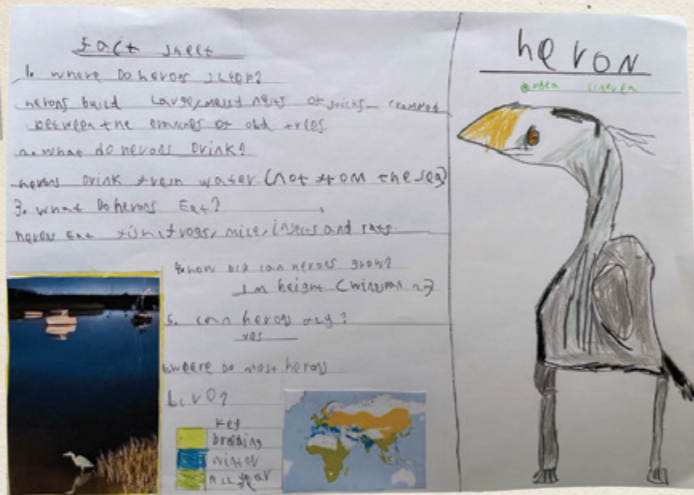 Fact sheet
1. where Do herons sleep?
herons build large, messy nests of sticks
between the branches of old trees
2. What do herons Drink?
herons Drink fresh water (not from the sea)
3. what Do herons Eat?
herons Eat fish, frogs, mice, insects and rats.
4. how big can herons grow?
1m height (wingspan 2)
5. can herons fly?
yes
6. where Do most herons
Live?
key
breeding
winter
all year
heron